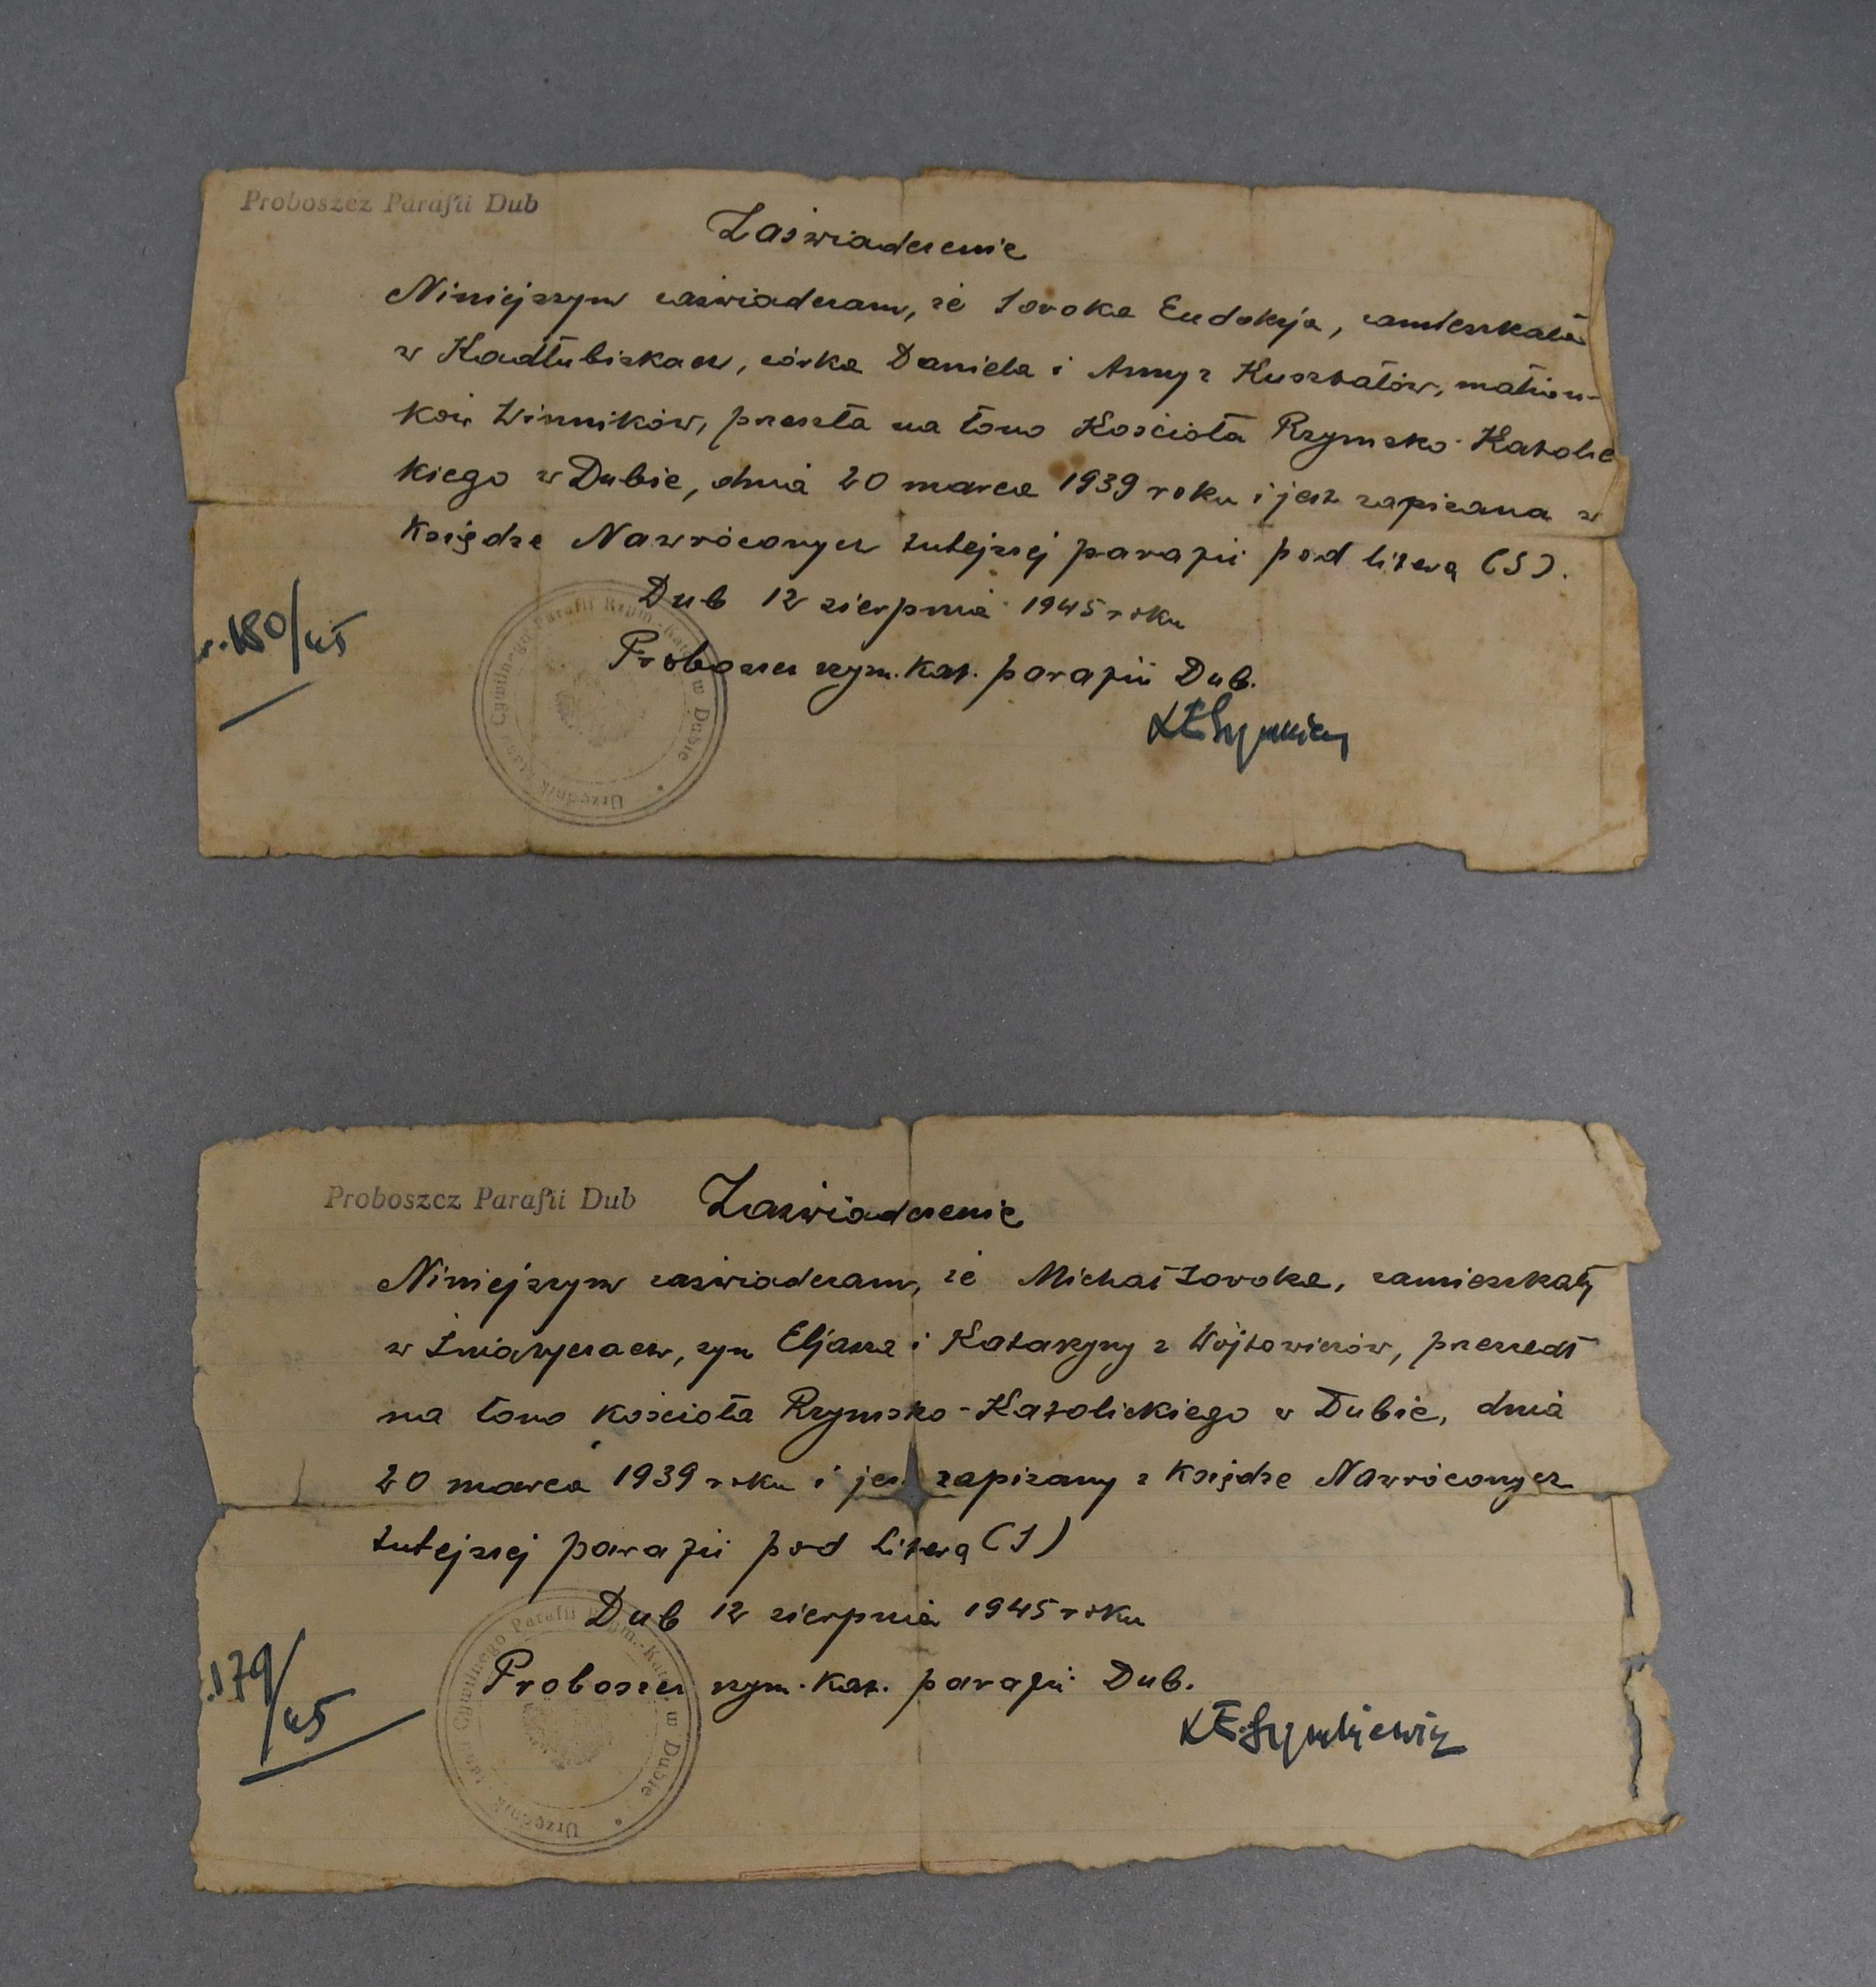 Proboszcz Parafii Dub
Zaświadczenie
Niniejszym zaświadczam, że Soroka Eudokja, zamieszkała
w Kadłubiskach, córka Daniela i Anny z Kuształów, małżon-
ków Winników, przeszła na łono Kościoła Rzymsko-Katolic
kiego w Dubie, dnia 20 marca 1939 roku i jest zapisana w
Księdze Nawróconych tutejszej parafii pod literą (S).
Dub 12 sierpnia 1945 roku
Proboszcz rzym. kat. parafii Dub.
180/45
Urzędnik Stanu Cywilnego Parafii Rzym.-Kat. w Dubie
Proboszcz Parafii Dub
Zaświadczenie
Niniejszym zaświadczam, że Michał Soroka, zamieszkały
w Śniatyczach, syn Eljasza i Katarzyny z Wójtowiczów, przeszedł
na łono kościoła Rzymsko-Katolickiego w Dubie, dnia
20 marca 1939 roku i jest zapisany z Księdze Nawróconych
tutejszej parafii pod literą (S)
Dub 12 sierpnia 1945 roku
Proboszcz rzym. kat. parafii Dub.
179/45
Urzędnik Stanu Cywilnego Parafii Rzym.-Kat. w Dubie